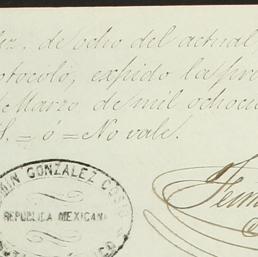 luz, de ocho del actual
otocolo, expido la pre
de Marzo de mil ochoci
S. = o = No vale.
MIN GONZALEZ COS
REPUBLICA MEXICANA